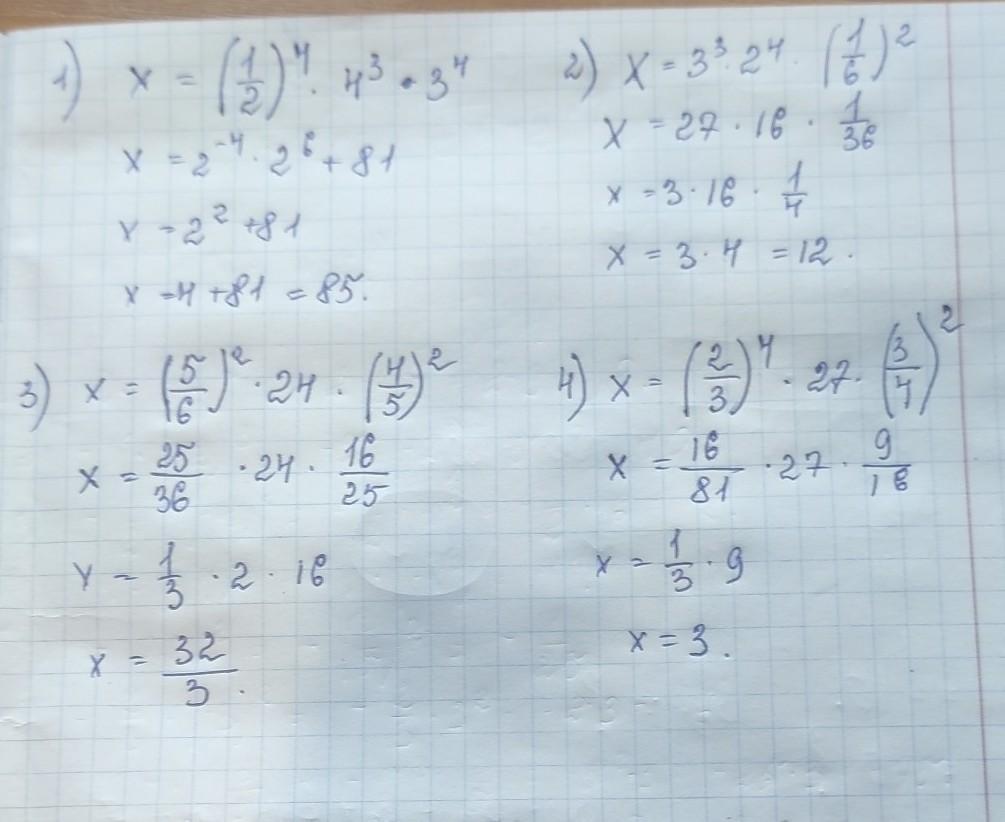 1) x = (1/2)^4 · 4^3 · 3^4
x = 2^-4 · 2^6 + 81
x = 2^2 + 81
x = 4 + 81 = 85.
2) x = 3^3 · 2^4 · (1/6)^2
x = 27 · 16 · 1/36
x = 3 · 16 · 1/4
x = 3 · 4 = 12.
3) x = (5/6)^2 · 24 · (4/5)^2
x = 25/36 · 24 · 16/25
x = 1/3 · 2 · 16
x = 32/3.
4) x = (2/3)^4 · 27 · (3/4)^2
x = 16/81 · 27 · 9/16
x = 1/3 · 9
x = 3.